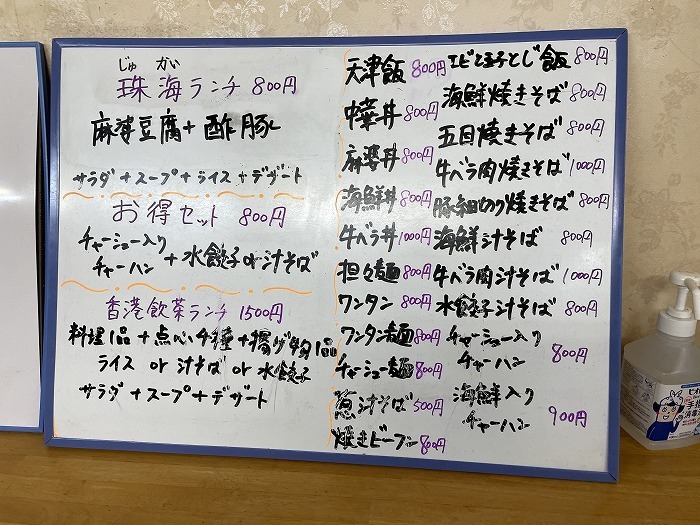 じゅ がい
珠海ランチ 800円
麻婆豆腐+酢豚
サラダ+スープ+ライス+デザート
お得セット 800円
チャーシュー入り
チャーハン + 水餃子or汁そば
香港飲茶ランチ 1500円
料理1品+点心4種+揚げ物1品
ライス or 汁そば or 水餃子
サラダ+スープ+デザート
天津飯 800円
中華丼 800円
麻婆丼 800円
海鮮丼 800円
牛バラ丼 1000円
担々麺 800円
ワンタン 800円
ワンタン麺 800円
チャーシュー麺 800円
葱汁そば 500円
焼きビーフン 800円
エビと玉子とじ飯 800円
海鮮焼きそば 800円
五目焼きそば 800円
牛バラ肉焼きそば 1000円
豚細切り焼きそば 800円
海鮮汁そば 800円
牛バラ肉汁そば 1000円
水餃子汁そば 800円
チャーシュー入り
チャーハン 800円
海鮮入り
チャーハン 900円